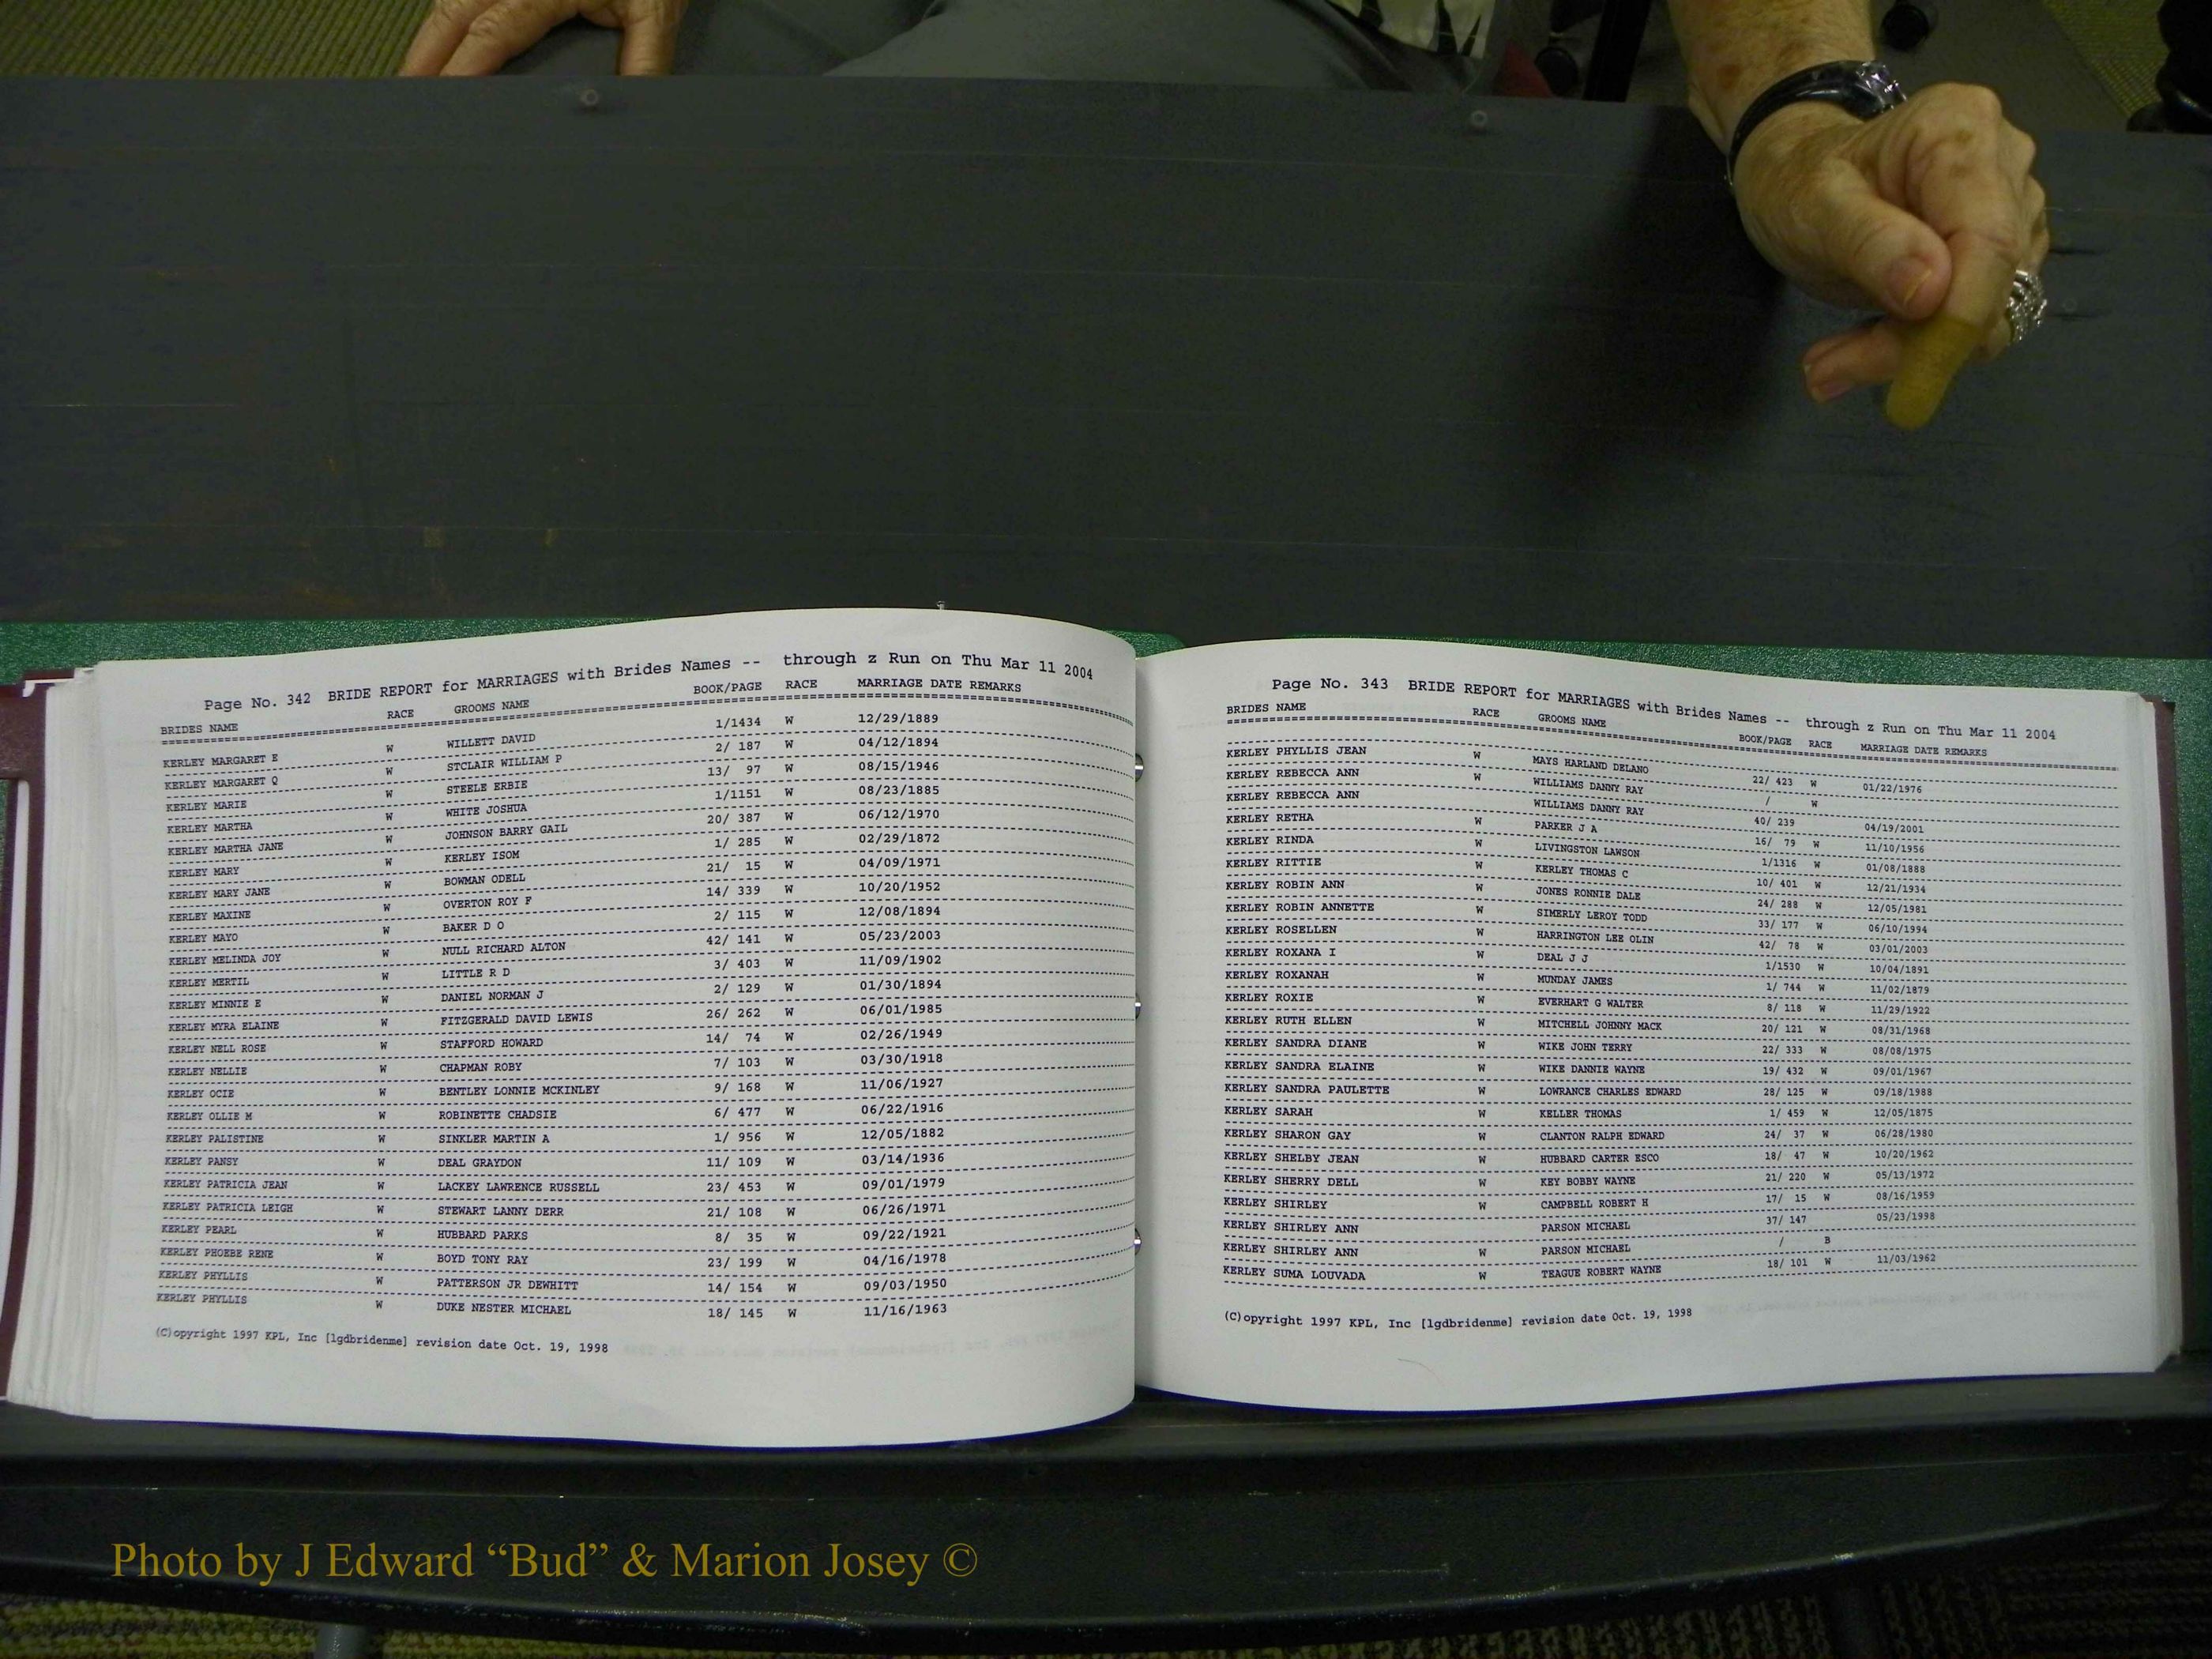 Page No. 342 BRIDE REPORT for MARRIAGES with Brides Names -- through z Run on Thu Mar 11 2004
BRIDES NAME RACE GROOMS NAME BOOK/PAGE RACE MARRIAGE DATE REMARKS
KERLEY MARGARET E W WILLETT DAVID 1/1434 W 12/29/1889
KERLEY MARGARET Q W STCLAIR WILLIAM P 2/ 187 W 04/12/1894
KERLEY MARIE W STEELE ERBIE 13/ 97 W 08/15/1946
KERLEY MARTHA W WHITE JOSHUA 1/1151 W 08/23/1885
KERLEY MARTHA JANE W JOHNSON BARRY GAIL 20/ 387 W 06/12/1970
KERLEY MARY W KERLEY ISOM 1/ 285 W 02/29/1872
KERLEY MARY JANE W BOWMAN ODELL 21/ 15 W 04/09/1971
KERLEY MAXINE W OVERTON ROY F 14/ 339 W 10/20/1952
KERLEY MAYO W BAKER D O 2/ 115 W 12/08/1894
KERLEY MELINDA JOY W NULL RICHARD ALTON 42/ 141 W 05/23/2003
KERLEY MERTIL W LITTLE R D 3/ 403 W 11/09/1902
KERLEY MINNIE E W DANIEL NORMAN J 2/ 129 W 01/30/1894
KERLEY MYRA ELAINE W FITZGERALD DAVID LEWIS 26/ 262 W 06/01/1985
KERLEY NELL ROSE W STAFFORD HOWARD 14/ 74 W 02/26/1949
KERLEY NELLIE W CHAPMAN ROBY 7/ 103 W 03/30/1918
KERLEY OCIE W BENTLEY LONNIE MCKINLEY 9/ 168 W 11/06/1927
KERLEY OLLIE M W ROBINETTE CHADSIE 6/ 477 W 06/22/1916
KERLEY PALISTINE W SINKLER MARTIN A 1/ 956 W 12/05/1882
KERLEY PANSY W DEAL GRAYDON 11/ 109 W 03/14/1936
KERLEY PATRICIA JEAN W LACKEY LAWRENCE RUSSELL 23/ 453 W 09/01/1979
KERLEY PATRICIA LEIGH W STEWART LANNY DERR 21/ 108 W 06/26/1971
KERLEY PEARL W HUBBARD PARKS 8/ 35 W 09/22/1921
KERLEY PHOEBE RENE W BOYD TONY RAY 23/ 199 W 04/16/1978
KERLEY PHYLLIS W PATTERSON JR DEWHITT 14/ 154 W 09/03/1950
KERLEY PHYLLIS W DUKE NESTER MICHAEL 18/ 145 W 11/16/1963
(C)opyright 1997 KPL, Inc [lgdbridenme] revision date Oct. 19, 1998
Page No. 343 BRIDE REPORT for MARRIAGES with Brides Names -- through z Run on Thu Mar 11 2004
BRIDES NAME RACE GROOMS NAME BOOK/PAGE RACE MARRIAGE DATE REMARKS
KERLEY PHYLLIS JEAN W MAYS HARLAND DELANO 22/ 423 W 01/22/1976
KERLEY REBECCA ANN W WILLIAMS DANNY RAY / W
KERLEY REBECCA ANN WILLIAMS DANNY RAY 40/ 239 04/19/2001
KERLEY RETHA W PARKER J A 16/ 79 W 11/10/1956
KERLEY RINDA W LIVINGSTON LAWSON 1/1316 W 01/08/1888
KERLEY RITTIE W KERLEY THOMAS C 10/ 401 W 12/21/1934
KERLEY ROBIN ANN W JONES RONNIE DALE 24/ 288 W 12/05/1981
KERLEY ROBIN ANNETTE W SIMERLY LEROY TODD 33/ 177 W 06/10/1994
KERLEY ROSELLEN W HARRINGTON LEE OLIN 42/ 78 W 03/01/2003
KERLEY ROXANA I W DEAL J J 1/1530 W 10/04/1891
KERLEY ROXANAH W MUNDAY JAMES 1/ 744 W 11/02/1879
KERLEY ROXIE W EVERHART G WALTER 8/ 118 W 11/29/1922
KERLEY RUTH ELLEN W MITCHELL JOHNNY MACK 20/ 121 W 08/31/1968
KERLEY SANDRA DIANE W WIKE JOHN TERRY 22/ 333 W 08/08/1975
KERLEY SANDRA ELAINE W WIKE DANNIE WAYNE 19/ 432 W 09/01/1967
KERLEY SANDRA PAULETTE W LOWRANCE CHARLES EDWARD 28/ 125 W 09/18/1988
KERLEY SARAH W KELLER THOMAS 1/ 459 W 12/05/1875
KERLEY SHARON GAY W CLANTON RALPH EDWARD 24/ 37 W 06/28/1980
KERLEY SHELBY JEAN W HUBBARD CARTER ESCO 18/ 47 W 10/20/1962
KERLEY SHERRY DELL W KEY BOBBY WAYNE 21/ 220 W 05/13/1972
KERLEY SHIRLEY W CAMPBELL ROBERT H 17/ 15 W 08/16/1959
KERLEY SHIRLEY ANN PARSON MICHAEL 37/ 147 05/23/1998
KERLEY SHIRLEY ANN W PARSON MICHAEL / B
KERLEY SUMA LOUVADA W TEAGUE ROBERT WAYNE 18/ 101 W 11/03/1962
(C)opyright 1997 KPL, Inc [lgdbridenme] revision date Oct. 19, 1998
Photo by J Edward “Bud” & Marion Josey ©